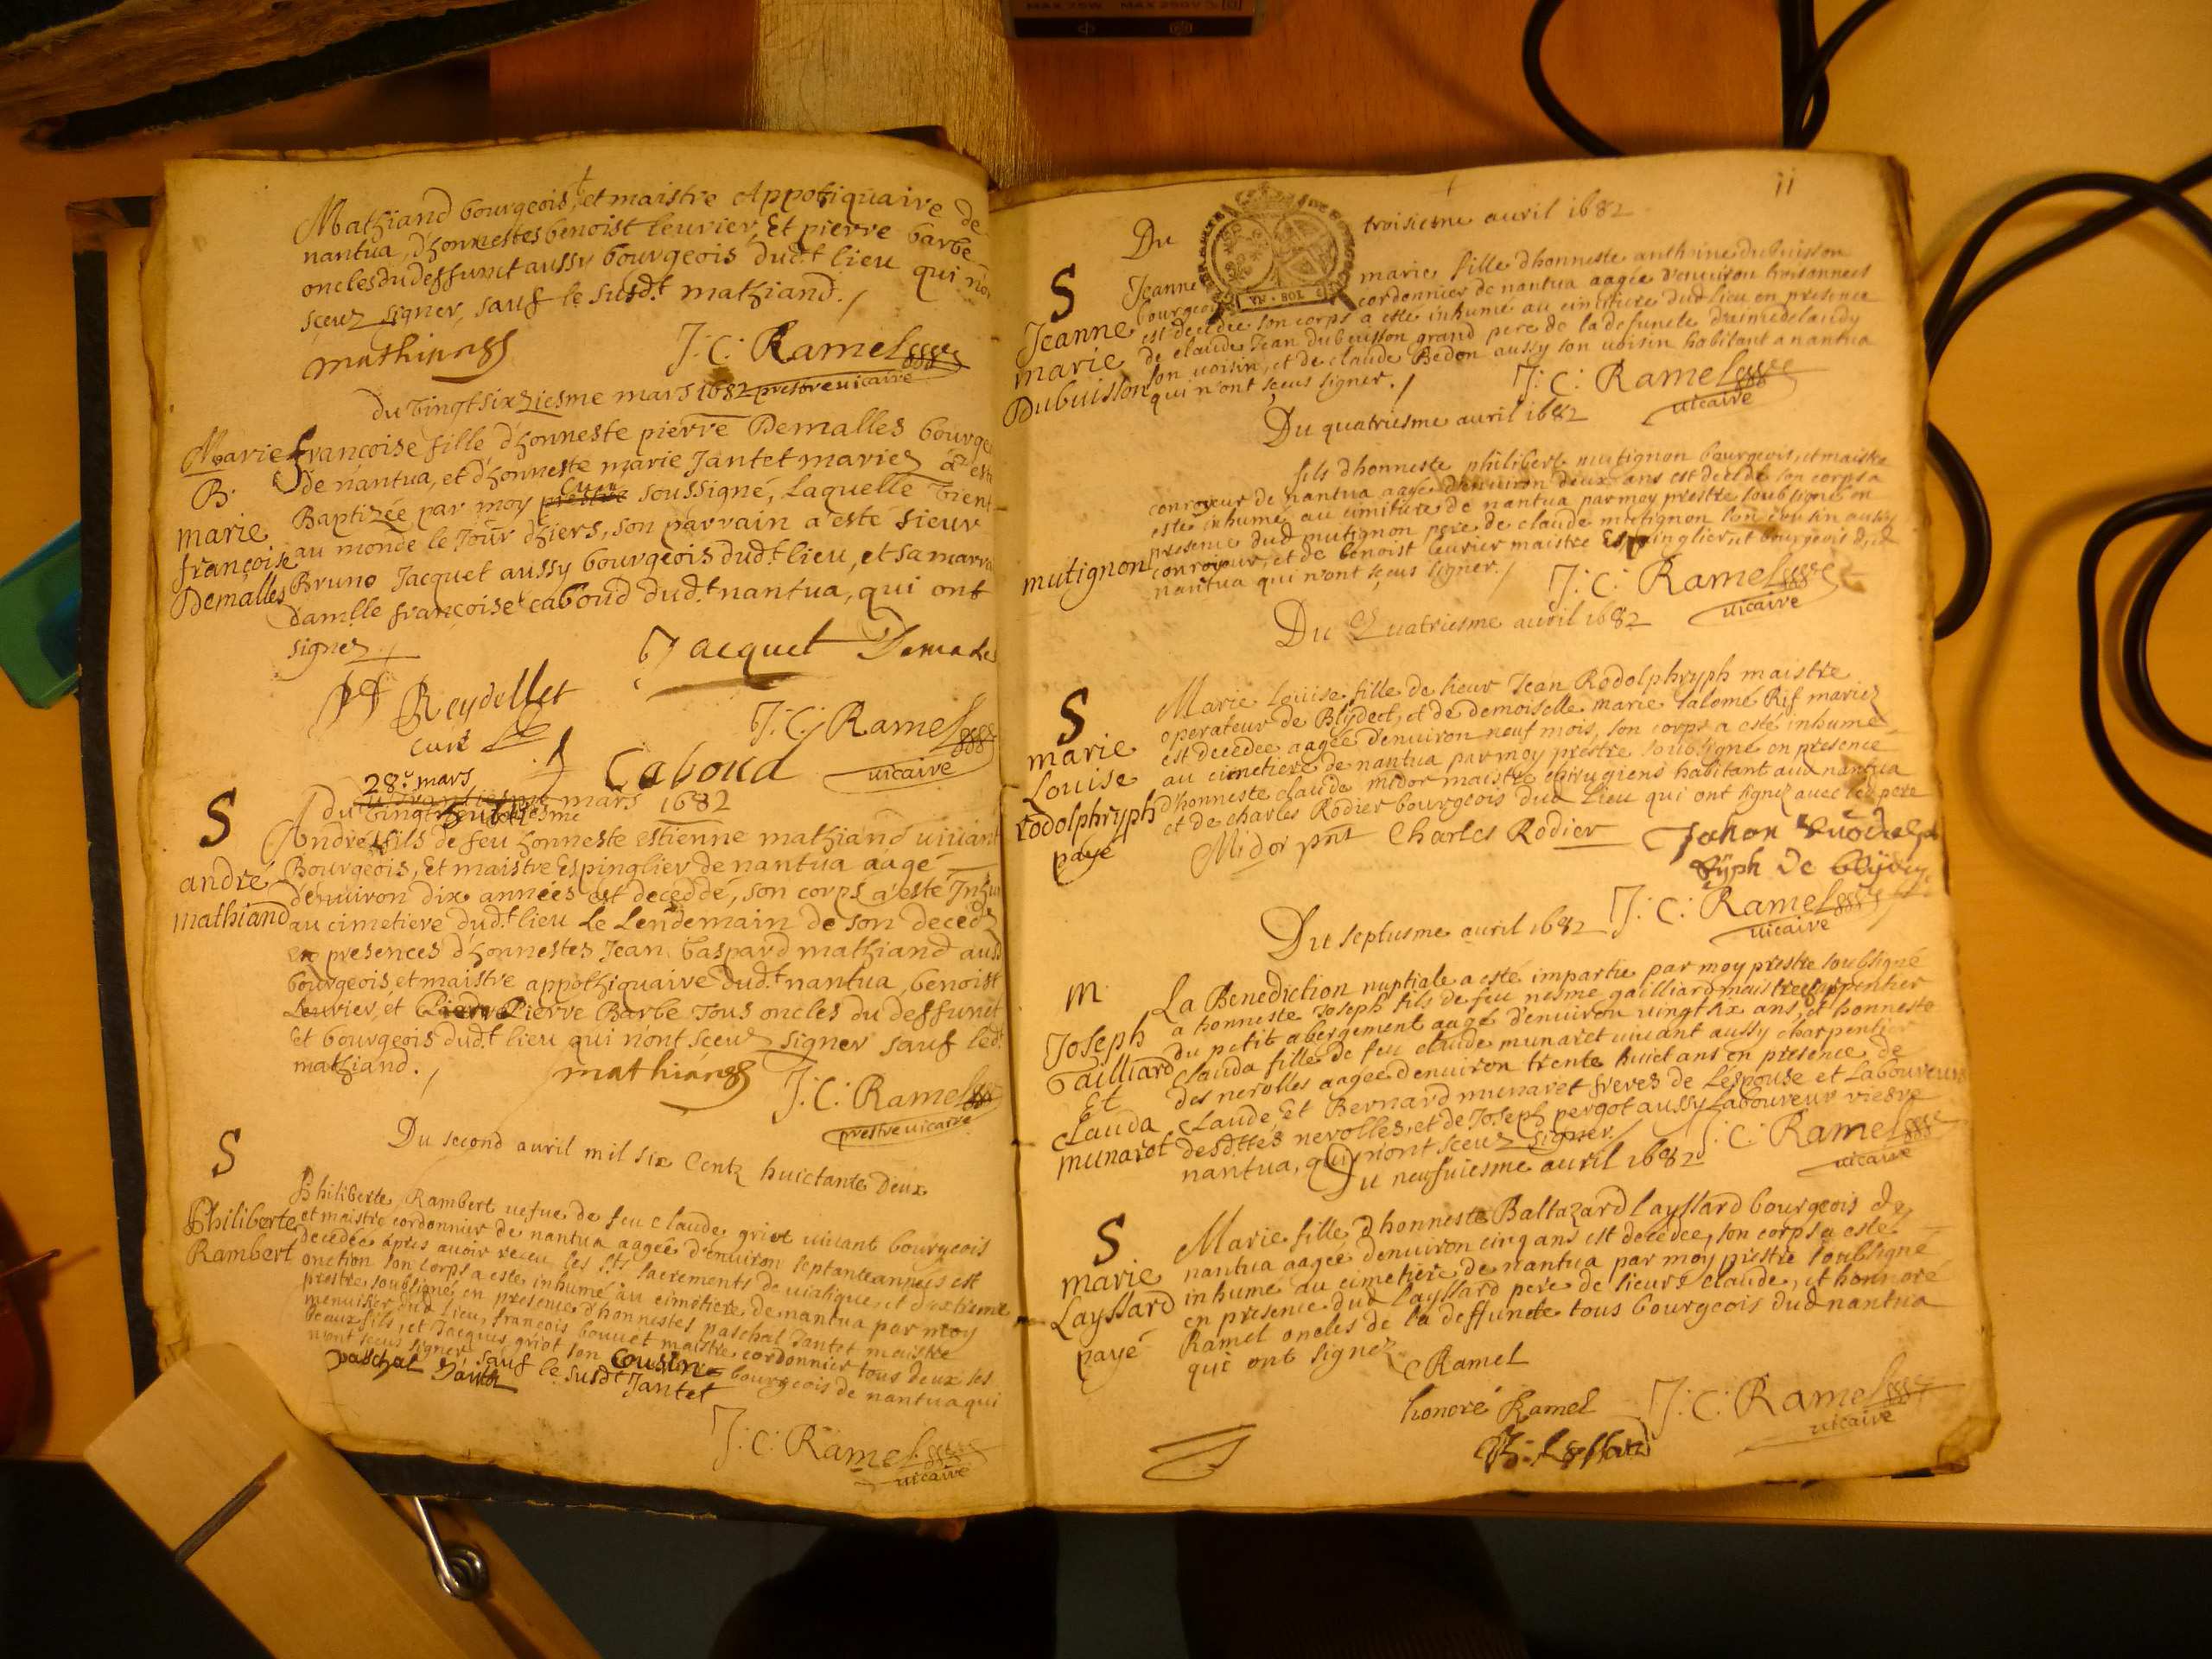 Mathiand bourgeois, et maistre Appotiquaire de
nantua, d'honnestes benoist leurier, Et pierre barbe
oncles du deffunct aussy bourgeois dud.t lieu qui n'on
sceuz signer, sauf le susd.t mathiand.
mathiand
J: C: Ramel
prestre vicaire
du vingt sixziesme mars 1682
Marie françoise fille, d'honneste pierre Demalles bourge
B.
de nantua, et d'honneste marie Jantet mariez à esté
Baptizée par moy curé soussigné, Laquelle vient
marie
au monde le Jour d'hiers, son parrain a'esté sieur
françoise
Bruno Jacquet aussy bourgeois dud.t lieu, et sa marra
Demalles
damlle françoise caboud dud.t nantua, qui ont
signez
Jacquet Demales
Reydellet
curé
J: C: Ramel
vicaire
Caboud
28.e mars
du mars 1682
S
André fils de feu honneste estienne mathiand vivant
Bourgeois, Et maistre Espinglier de nantua aagé
andré
d'enuiron dix années est deceddé, son corps a'esté Inhu
mathiand
au cimetiere dud.t lieu Le Lendemain de son decedz
en presences d'honnestes Jean Gaspard mathiand aussy
bourgeois, et maistre appothiquaire dud.t nantua, benoist
Leurier, et Pierre Barbe Tous oncles du deffunct
Et bourgeois dud.t lieu qui n'ont sceuz signer sauf led.
mathiand.
mathiand
J: C: Ramel
prestre vicaire
Du second auril mil six Centz huictante Deux
S
Philiberte Rambert uefue de feu claude griot uiuant bourgeois
Philiberte
et maistre cordonnier de nantua aagée d'enuiron septante années est
Rambert
decedée apres auoir receu les sts sacrements de uiatique, et d'extreme
onction son corps a esté inhumé au cimetiere de nantua par moy
prestre soubsigné en presence d'honnestes paschal Jantet maistre
menuisier dud lieu, francois bouuet maistre cordonnier tous deux ses
beaux fils, et Jacques griot son cousin bourgeois de nantua qui
n'ont sceus signer sauf le susd.t Jantet
paschal Jantet
J: C: Ramel
vicaire
11
Du troisieme auril 1682
S
Jeanne marie fille d'honneste anthoine dubuisson
bourgeois cordonnier de nantua aagée d'enuiron trois années
Jeanne
est decedée son corps a esté inhumé au cimitiere dud lieu en presence
marie
de claude Jean dubuisson grand pere de la defuncte
Dubuisson
son uoisin, et de claude Bedon aussy son uoisin habitant a nantua
qui n'ont sceus signer.
J: C: Ramel
vicaire
Du quatriesme auril 1682
fils d'honneste philibert mutignon bourgeois, et maistre
conroyeur de nantua aagé d'enuiron deux ans est decedé son corps a
esté inhumé au cimitiere de nantua par moy prestre soubsigné en
presence dud mutignon pere de claude mutignon son cousin aussy
mutignon
conroyeur, et de benoist leurier maistre Espinglier et bourgeois dud
nantua qui n'ont sceus signer.
J: C: Ramel
vicaire
Du Quatriesme auril 1682
S
Marie Louise fille de sieur Jean Rodolphryph maistre
operateur de Blydect, et de demoiselle marie salomé Rif mariez
marie
est decedée aagée d'enuiron neuf mois, son corps a esté inhumé
Louise
au cimetiere de nantua par moy prestre soubsigné en presence
rodolphryph
d'honneste claude midor maistre chirugiens habitant aud nantua
payé
et de charles Rodier bourgeois dud Lieu qui ont signez auec led pere
Midor pnt Charles Rodier
J: C: Ramel
vicaire
Du septiesme auril 1682
m
La Benediction nuptiale a esté impartie par moy prestre soubsigné
Joseph
a honneste Joseph fils de feu nesme gailliard maistre charpentier
Gailliard
du petit abergement aagé d'enuiron uingt six ans, et honneste
Et
clauda fille de feu claude munaret uiuant aussy charpentier
Clauda
des nerolles aagée d'enuiron trente huict ans en presence de
munaret
claude, Et Bernard munaret freres de L'espouse et Laboureurs
desdttes nerolles, et de Joseph pergot aussy Laboureur riesre
nantua, qui n'ont sceuz signer
J: C: Ramel
vicaire
Du neufuiesme auril 1682
S
Marie fille d'honneste Baltazard layssard bourgeois de
marie
nantua aagée d'enuiron cinq ans est decedée, son corps a esté
Layssard
inhumé au cimetiere de nantua par moy prestre soubsigné
payé
en presence dud Layssard pere de sieurs claude, et honnoré
Ramel oncles de la deffuncte tous bourgeois dud nantua
qui ont signez
C Ramel
honoré Ramel
J: C: Ramel
vicaire